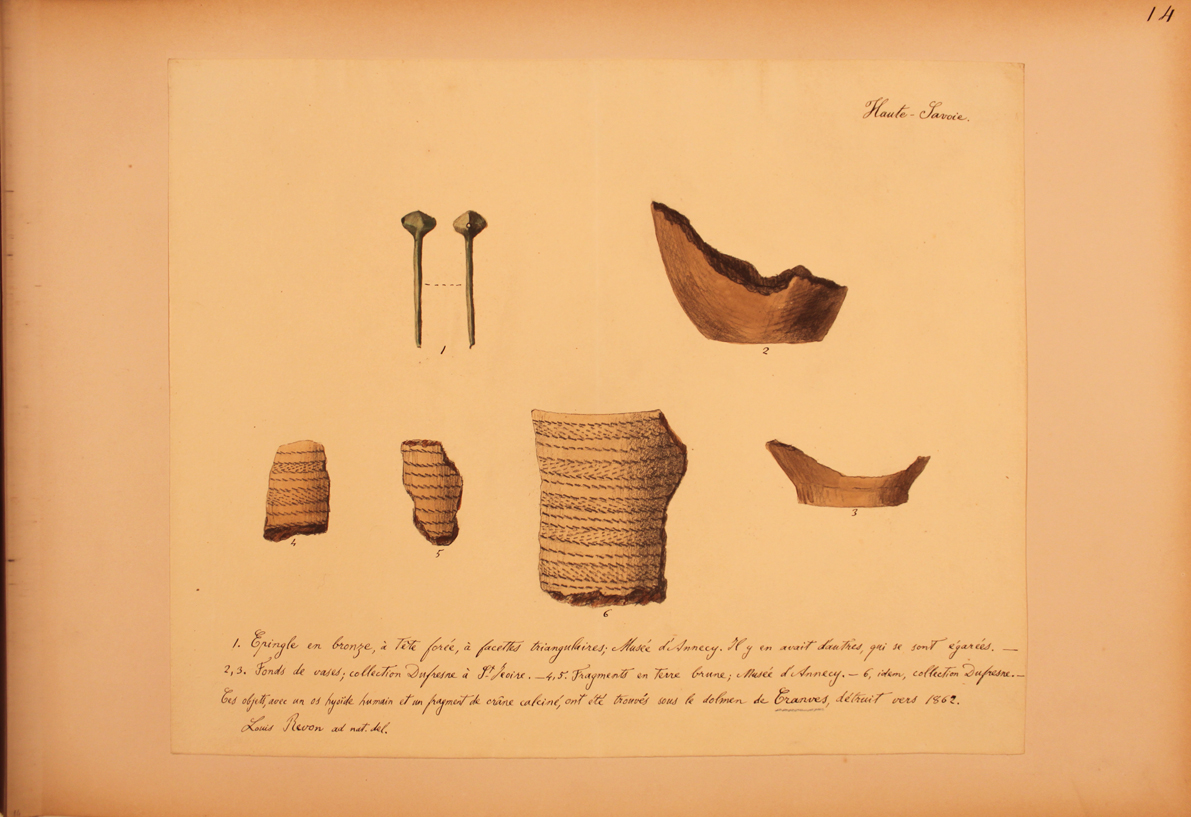 14
Haute-Savoie.
1
2
3
4
5
6
1. Epingle en bronze, à tête forée, à facettes triangulaires; Musée d'Annecy. Il y en avait d'autres, qui se sont égarées. —
2,3. Fonds de vases; collection Dufresne à St Jeoire. — 4,5. Fragments en terre brune; Musée d'Annecy. — 6, idem, collection Dufresne. —
Ces objets, avec un os hyoïde humain et un fragment de crâne calciné, ont été trouvés sous le dolmen de Cranves, détruit vers 1862.
Louis Revon ad nat. del.